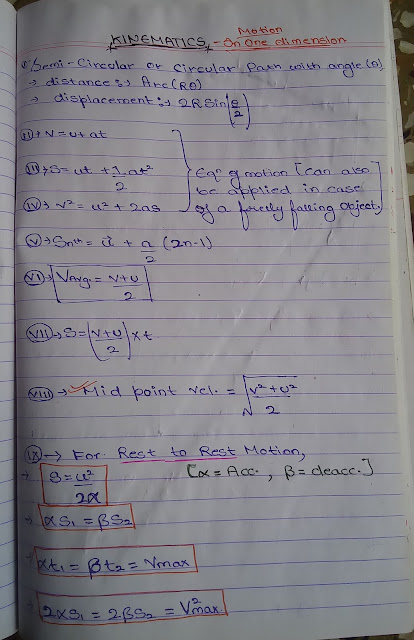 KINEMATICS - Motion In One dimension
i) Semi-Circular or Circular Path with angle (θ)
→ distance :→ Arc (Rθ)
→ displacement :→ 2R Sin(θ/2)
ii) → V = u + at
iii) → S = ut + 1/2 at²
iv) → v² = u² + 2as
Eqⁿ of motion [Can also
be applied in case
of a freely falling object.]
v) → Snth = u + a/2 (2n-1)
vi) → VAvg. = v+u/2
vii) → S = (v+u/2) × t
viii) → Mid point vel. = √(v²+u²/2)
ix) → For Rest to Rest Motion,
→ S = u²/2α [α = Acc., β = deacc.]
→ αS₁ = βS₂
→ αt₁ = βt₂ = Vmax
→ 2αS₁ = 2βS₂ = V²max.